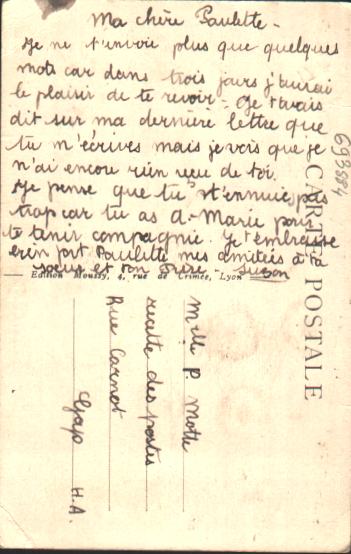 Ma chère Paulette -
Je ne t'envoie plus que quelques
mots car dans trois jours j'aurai
le plaisir de te revoir - Je t'avais
dit sur ma dernière lettre que
tu m'écrives mais je vois que je
n'ai encore rien reçu de toi.
Je pense que tu t'ennuies pas
trop car tu as A-Marie pour
te tenir compagnie. Je t'embrasse
bien fort Paulette mes amitiés à ta
soeur et ton frère - Suzon
Edition Moussy, 4, rue de Crimée, Lyon
CARTE POSTALE
693884
Mlle P. Motte
recette des postes
Rue Carnot
Gap H.A.